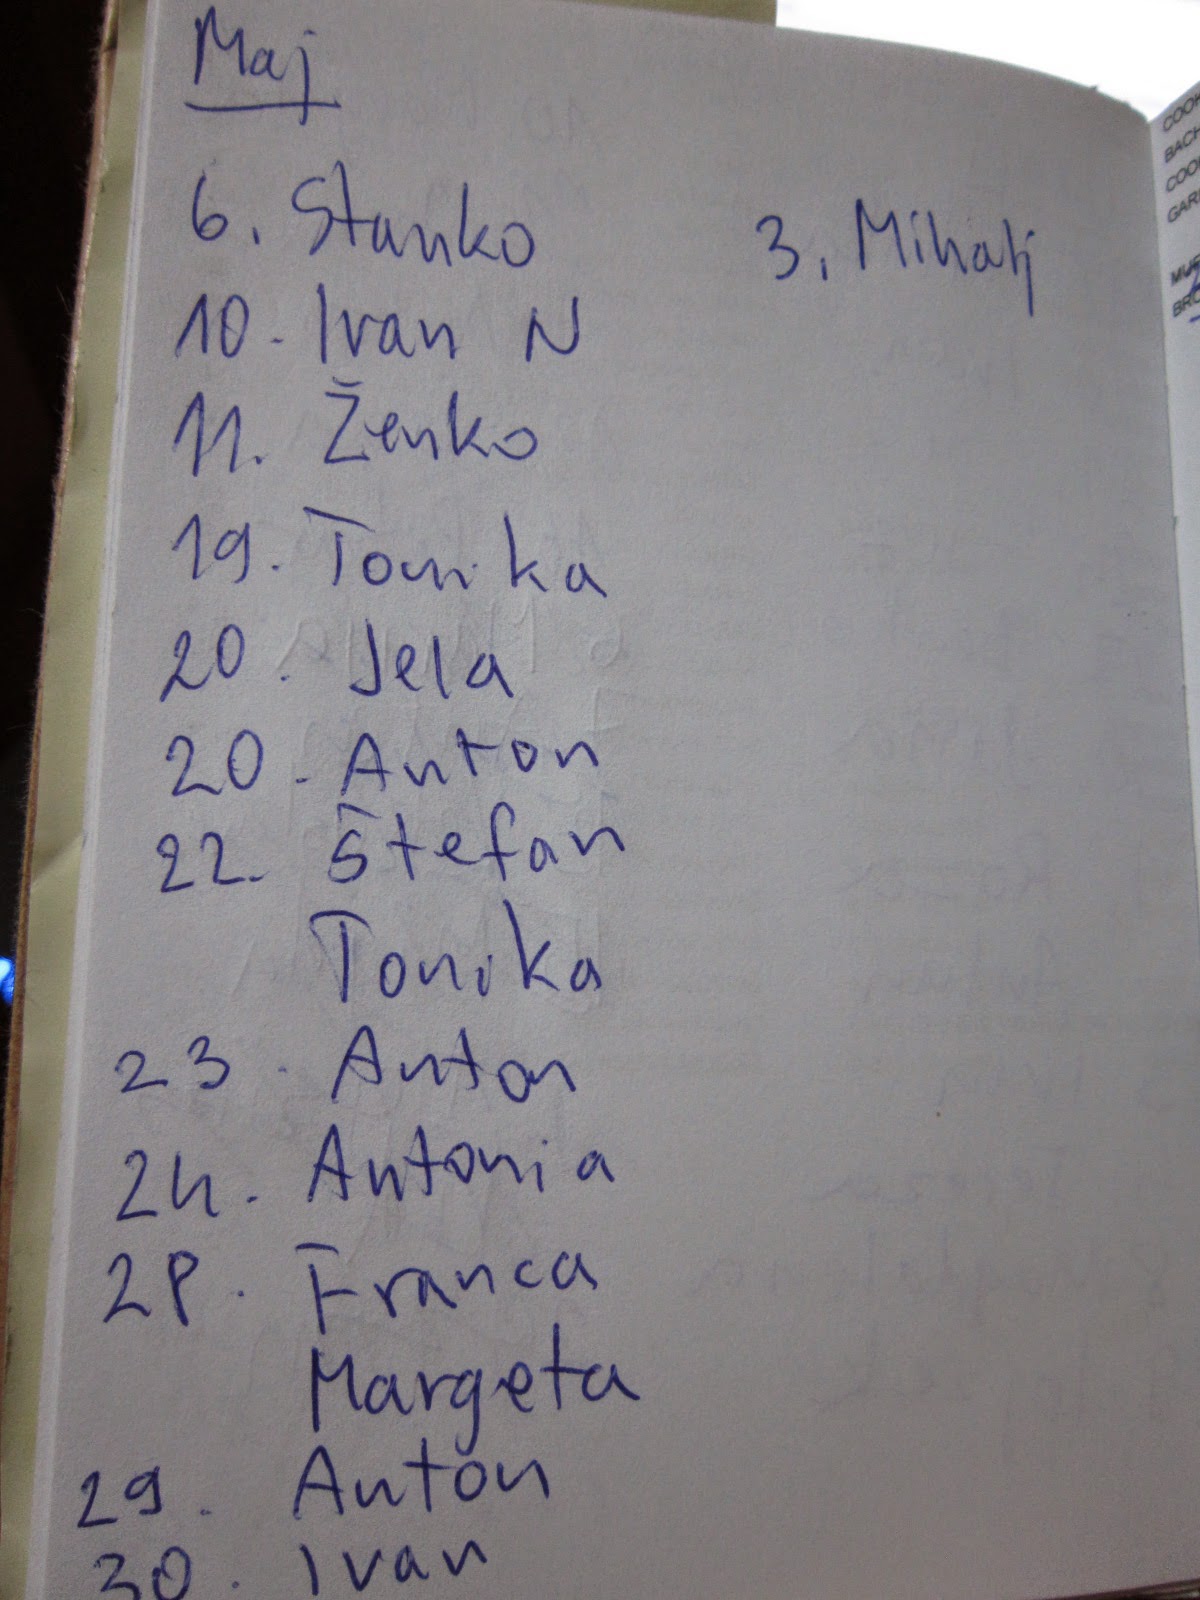 Maj
6. Stanko
3. Mihalj
10. Ivan N
11. Ženko
19. Tonika
20. Jela
20. Anton
22. Štefan
Tonika
23. Anton
24. Antonia
28. Franca
Margeta
29. Anton
30. Ivan